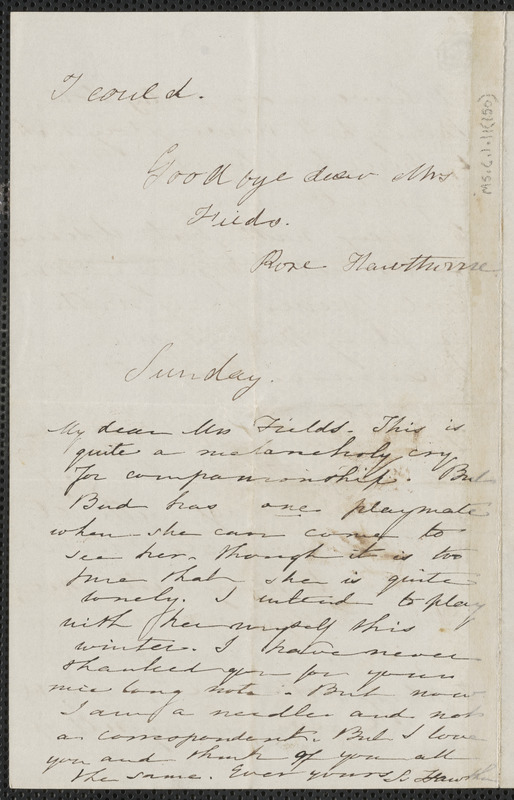 I could.
Good bye dear Mrs
Fields.
Rose Hawthorne
MS.C.1.11(150)
Sunday.
My dear Mrs Fields - This is
quite a melancholy cry
for companionship. But
Bud has one playmate
when she can come to
see her, though it is too
true that she is quite
lonely. I intend to play
with her myself this
winter. I have never
thanked you for your
nice long note. But now
I am a needle and not
a correspondent. But I love
you and think of you all
the same. Ever yours S. Hawthe